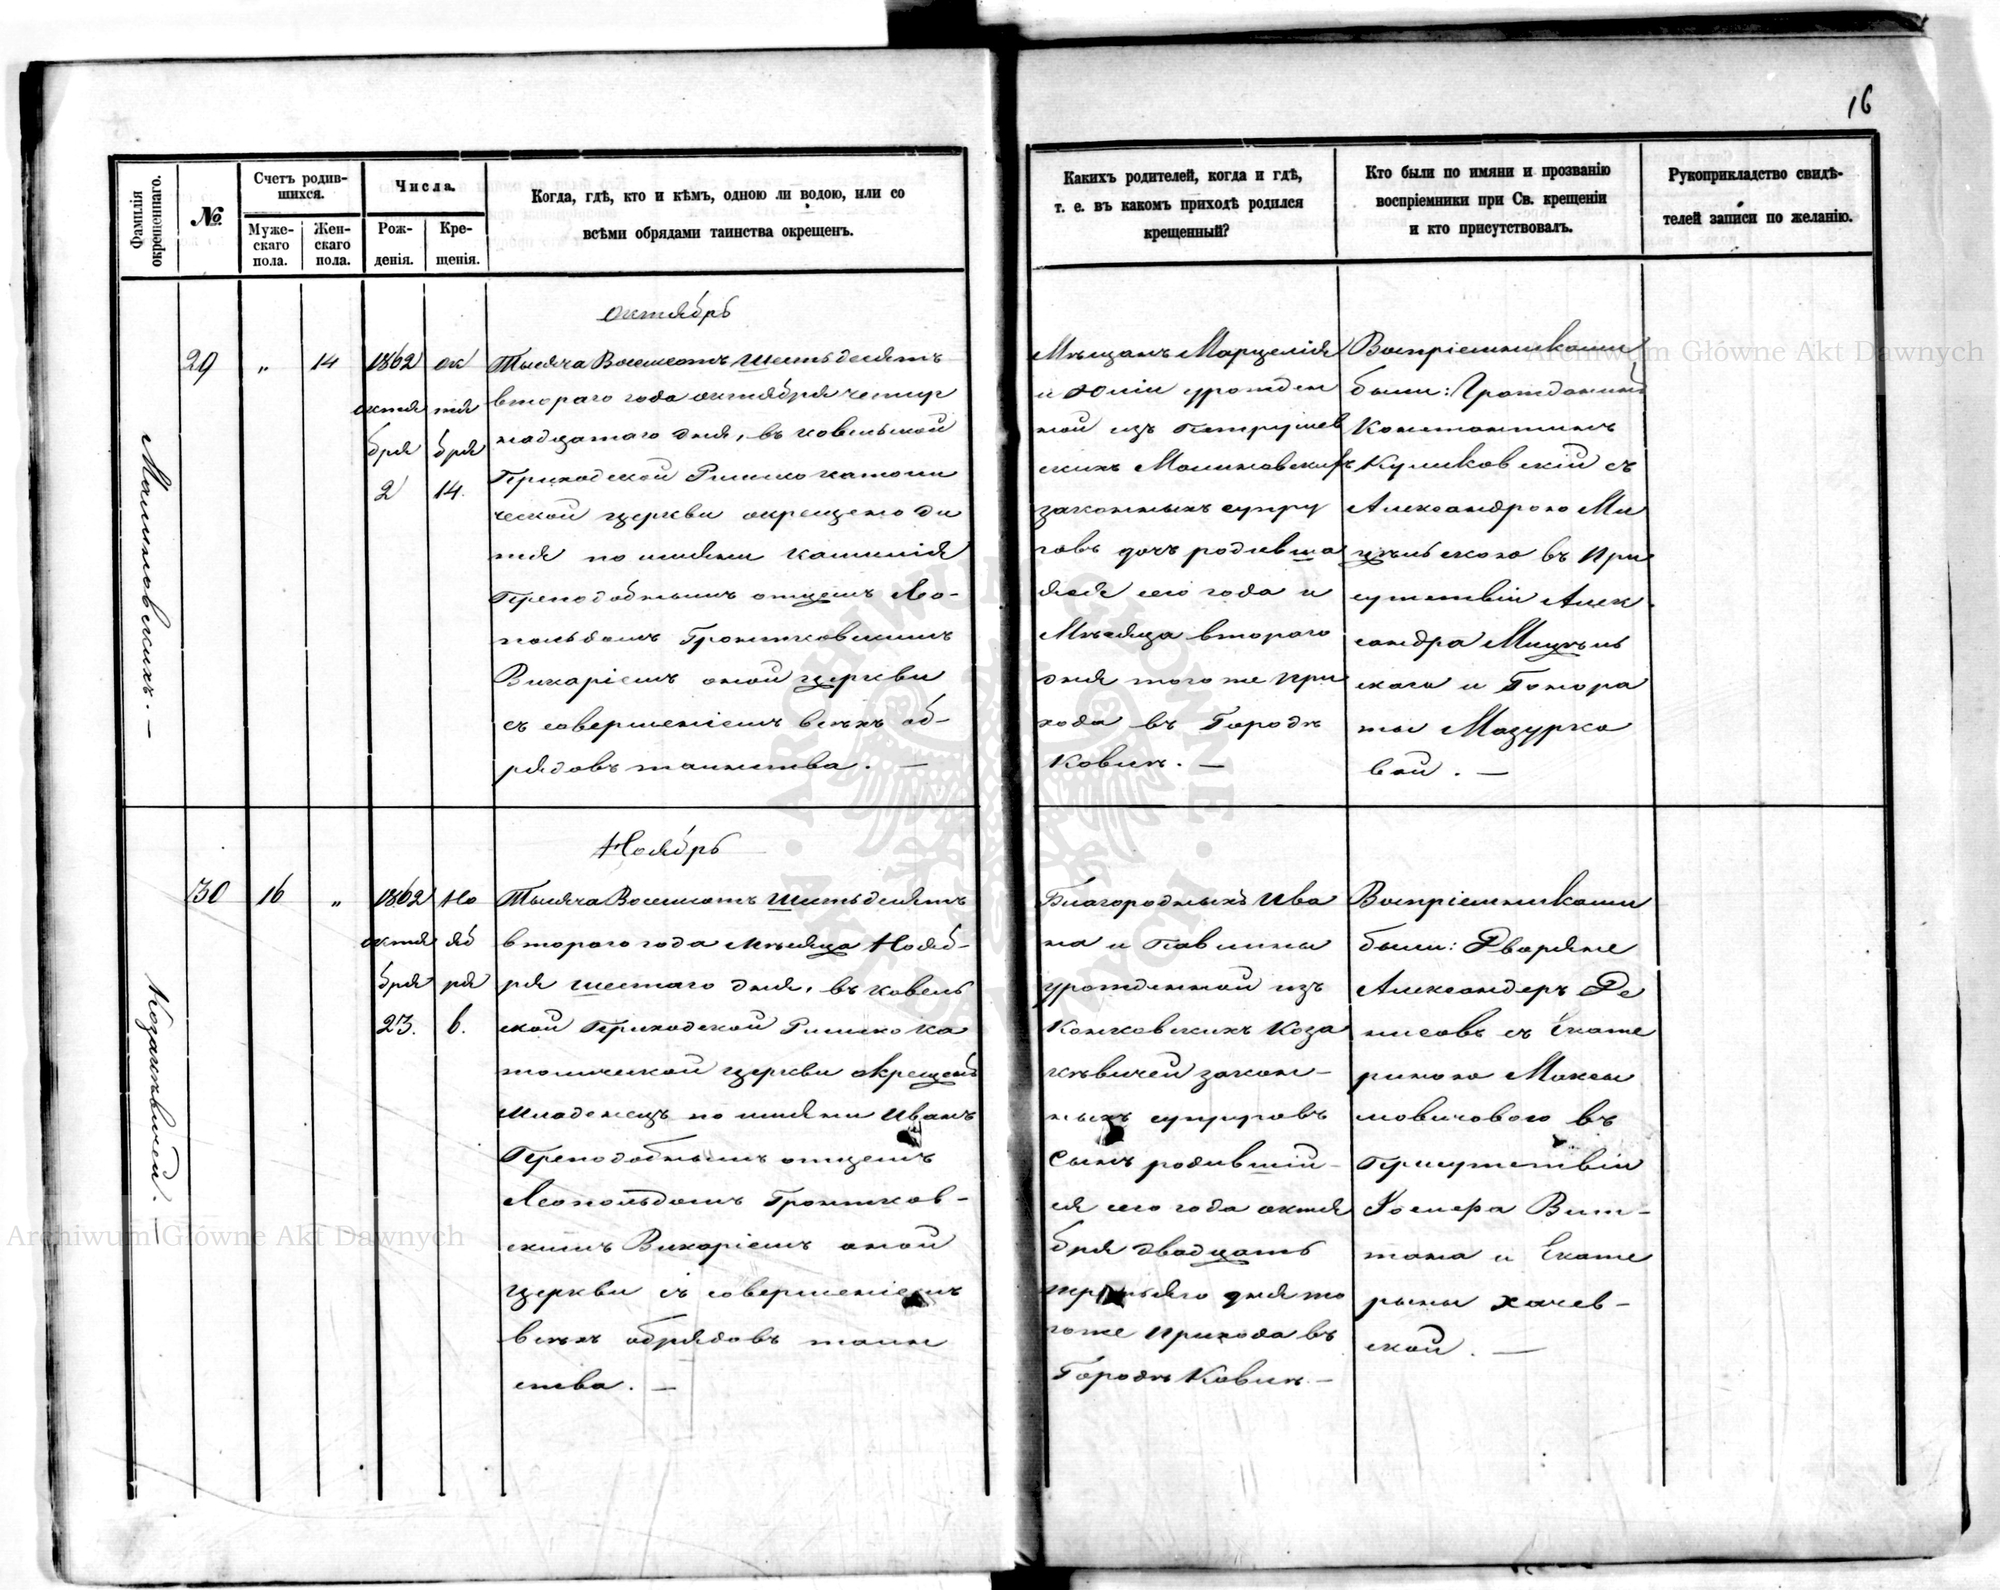 16
Фамилія
окрещеннаго.
№
Счетъ родив-
шихся.
Муже-
скаго
пола.
Жен-
скаго
пола.
Числа.
Рож-
денія.
Кре-
щенія.
Когда, гдѣ, кто и кѣмъ, одною ли водою, или со
всѣми обрядами таинства окрещенъ.
Какихъ родителей, когда и гдѣ,
т. е. въ какомъ приходѣ родился
крещенный?
Кто были по имяни и прозванію
воспріемники при Св. крещеніи
и кто присутствовалъ.
Рукоприкладство свидѣ-
телей записи по желанію.
Малиновскихъ. —
29
"
14
1862
октя
бря
2
ок
тя
бря
14.
Октябрь
Тысяча Восемсотъ Шестьдесятъ
втораго года октября четыр
надцатаго дня, въ Ковельской
Приходской Римско катои
ческой церкви окрещено ди
тя по имяни Камилія
Преподобнымъ отцемъ Лео-
польдомъ Гронтковскимъ
Викаріемъ оной церкви
съ совершеніемъ всѣхъ об-
рядовъ таинства. —
Мѣщанъ Марцелія
и Юліи урожден
ной изъ Петрушев
скихъ Малиновскихъ
законныхъ супру
говъ дочъ родивша
яся сего года и
Мѣсяца втораго
дня того же при
хода въ Городѣ
Ковлѣ. —
Воспріемниками
были: Гражданинъ
Константинъ
Куликовскій съ
Александрою Ми
цѣльскою въ при
сутствіи Алек
сандра Мицѣль
скаго и Гонора
ты Мазурко
вой. —
Козакѣвичей. —
30
16
"
1862
октя
бря
23.
Но
яб
ря
6.
Ноябрь
Тысяча Восемсотъ Шестьдесятъ
втораго года Мѣсяца Нояб-
ря шестаго дня, въ Ковель
ской Приходской Римско ка
толической церкви окрещенъ
Младенецъ по имяни Иванъ
Преподобнымъ отцемъ
Леопольдомъ Гронтков-
скимъ Викаріемъ оной
церкви съ совершеніемъ
всѣхъ обрядовъ таин
ства. —
Благородныхъ Ива
на и Павлины
урожденной изъ
Конковскихъ Коза
кѣвичей закон-
ныхъ супруговъ
Сынъ родившій-
ся сего года октя
бря двадцать
третьяго дня то
гоже прихода въ
Городѣ Ковлѣ —
Воспріемниками
были: Дворяне
Александеръ Де
нисовъ съ Екате
риною Максы
мовичовою въ
Присутствіи
Іосифа Вит-
тана и Екате
рины Хачев-
ской. —
Archiwum Główne Akt Dawnych
Archiwum Główne Akt Dawnych
ARCHIWUM GŁÓWNE AKT DAWNYCH